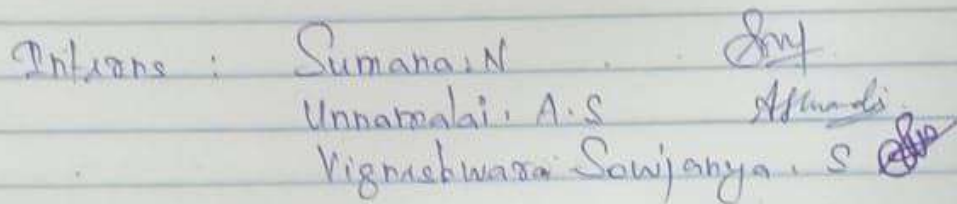 Interns : Sumana.N
Unnamalai. A.S
Vigneshwara Sowjanya. S